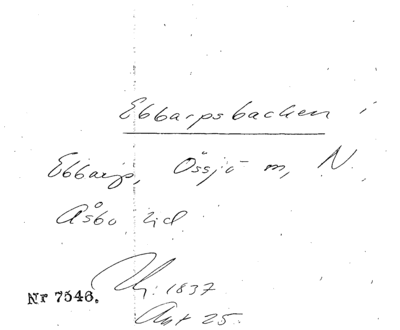 Ebbarpsbacken i
Ebbarp, Össjö m, N.
Åsbo hd
1837
Nr 7546.
Akt 25.